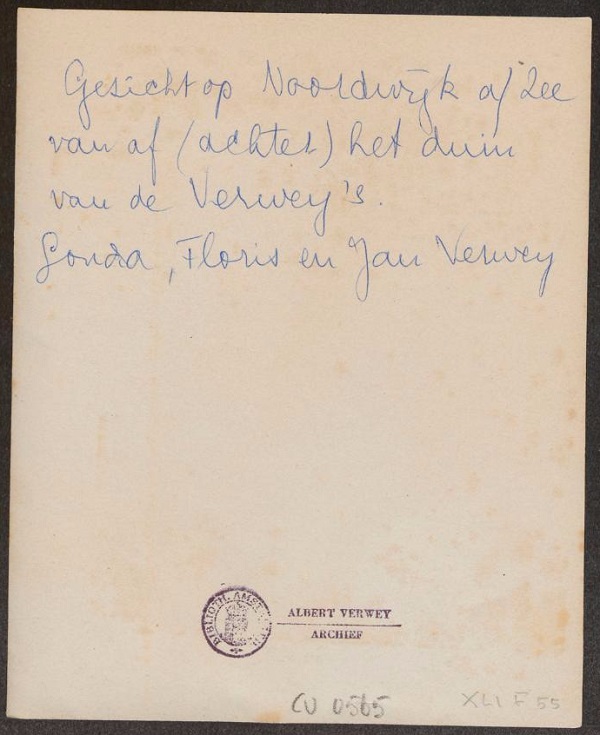 Gesicht op Noordwijk a/ Zee
van af (achter) het duin
van de Verwey's.
Gonda, Floris en Jan Verwey
BIBLIOTH. AMST
ALBERT VERWEY
ARCHIEF
CU 0565
XLI F 55